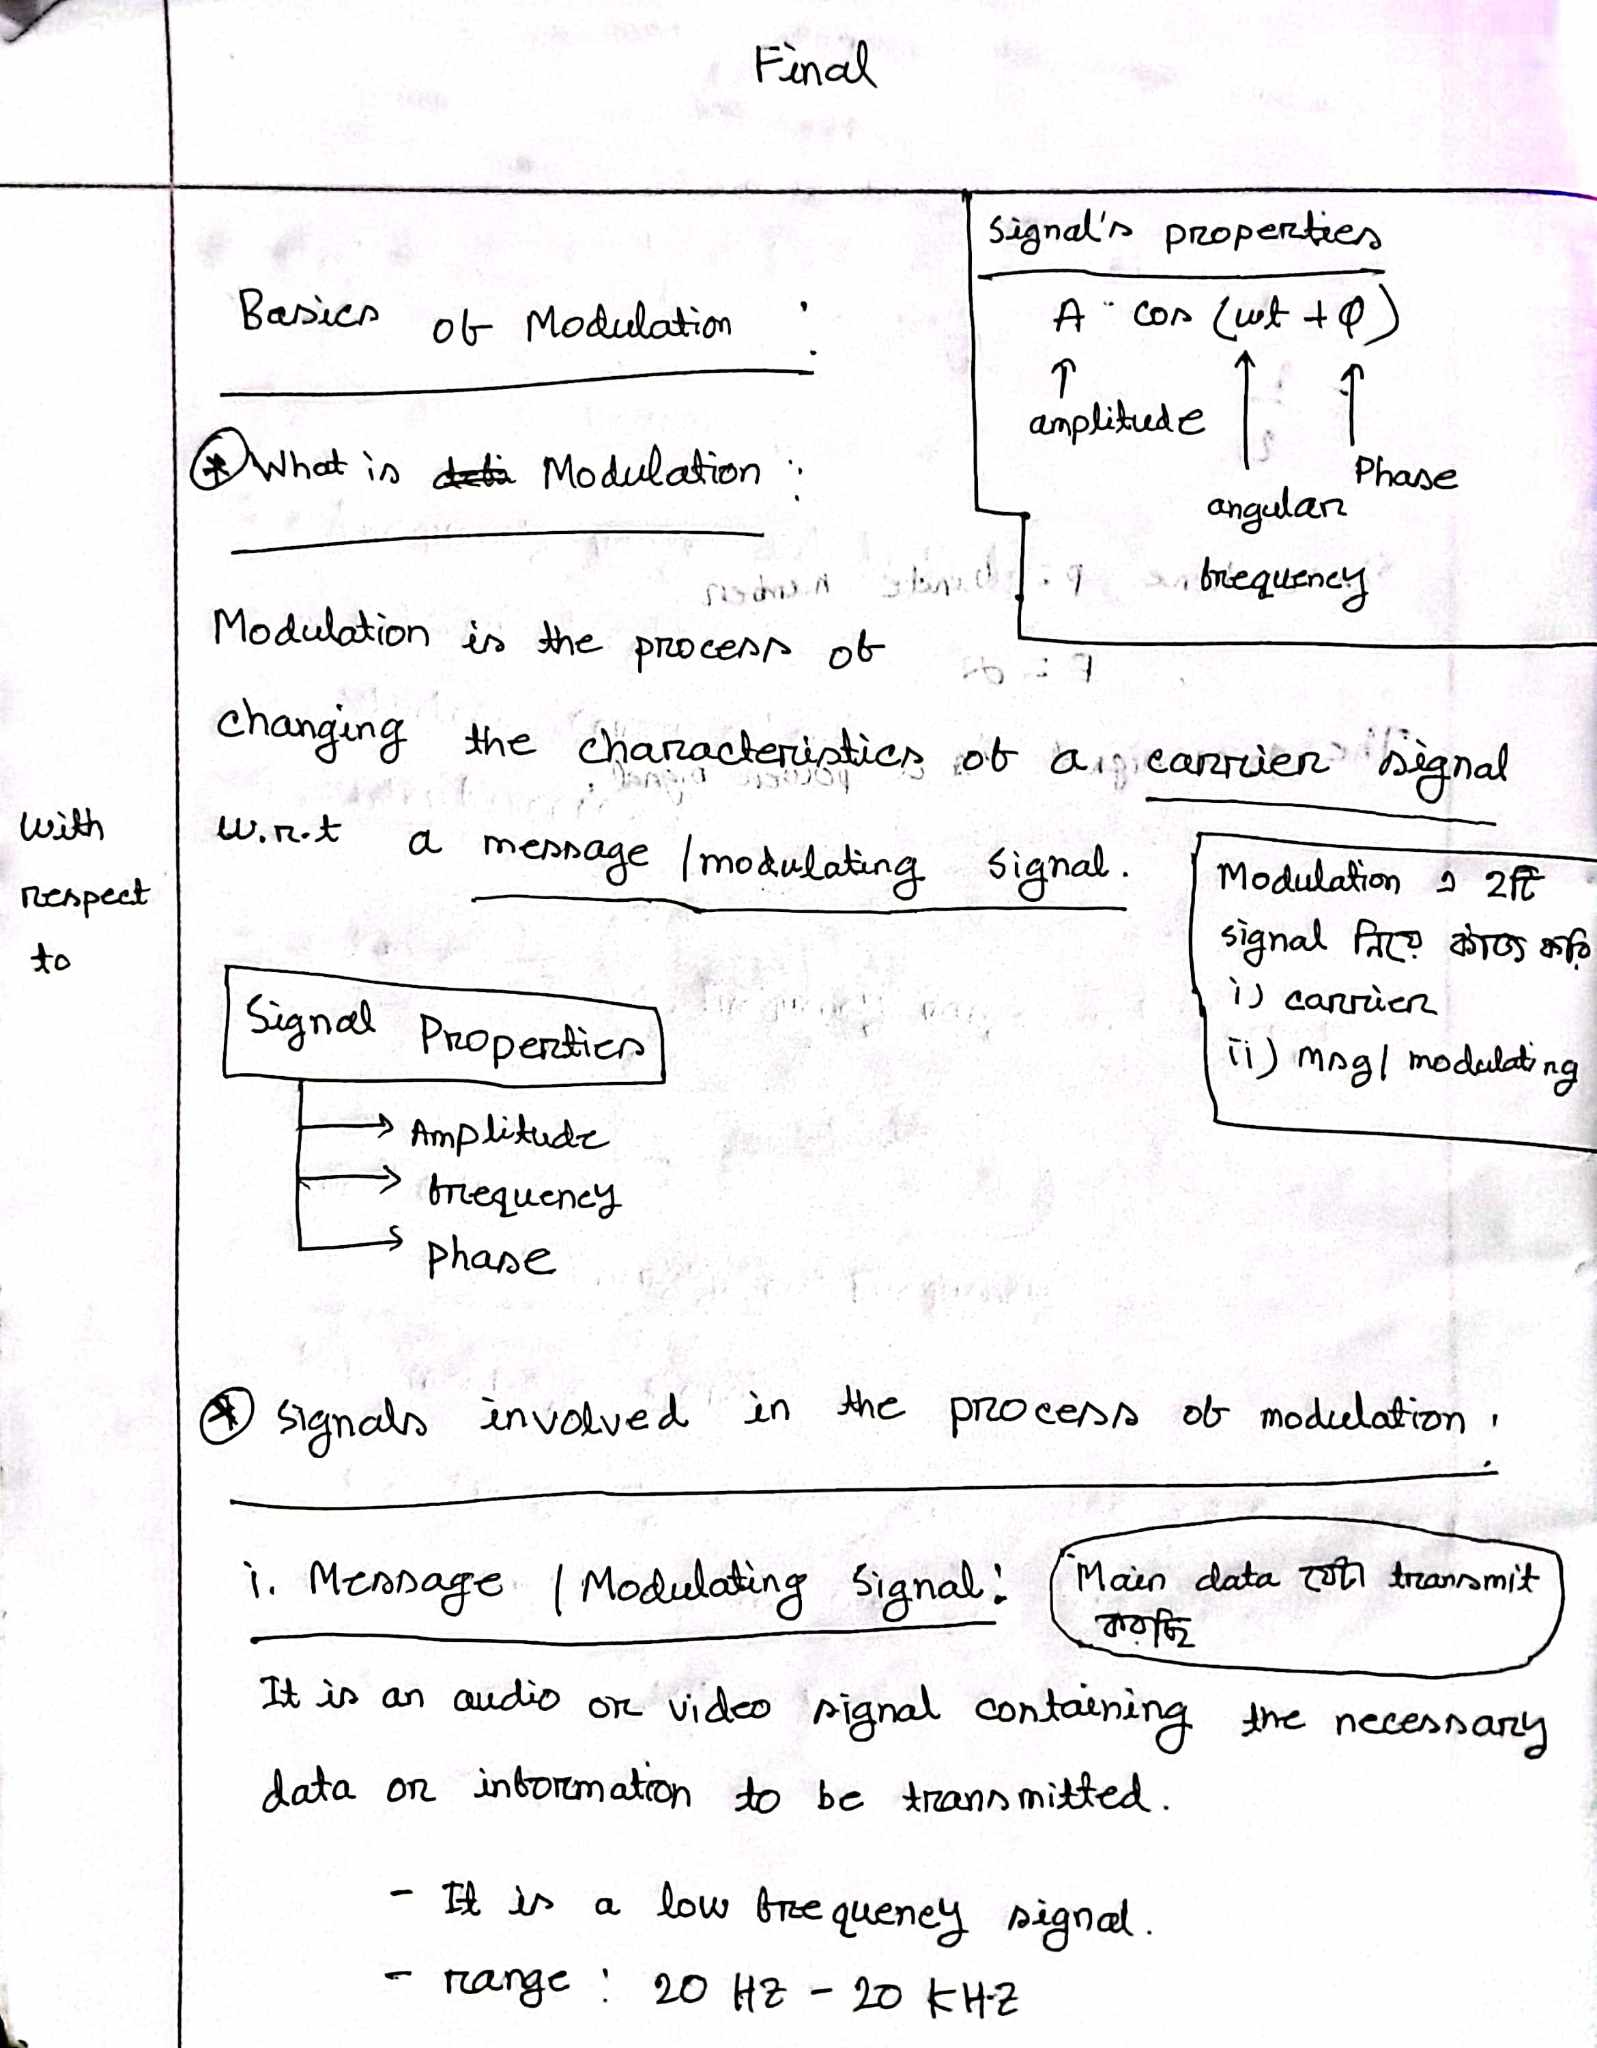 Final
Signal's properties
A cos (ωt + φ)
amplitude
Phase
angular
frequency
Basics of Modulation :
* What is Modulation :
Modulation is the process of
changing the characteristics of a carrier signal
w.r.t a message / modulating signal.
with
respect
to
Modulation এ 2টি
signal নিয়ে কাজ করি
i) carrier
ii) msg / modulating
Signal Properties
Amplitude
frequency
phase
* signals involved in the process of modulation :
i. Message / Modulating signal :
Main data যেটা transmit
করছি
It is an audio or video signal containing the necessary
data or information to be transmitted.
- It is a low frequency signal.
- range : 20 HZ - 20 KHZ